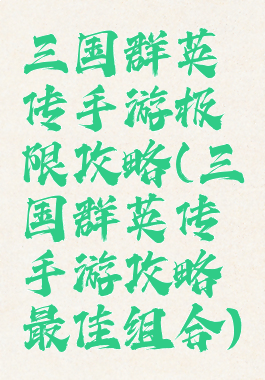 三国群英
传手游极
限攻略(三
国群英传
手游攻略
最佳组合)